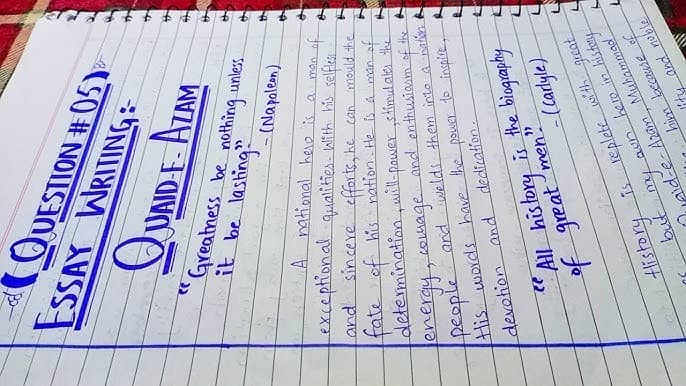 (QUESTION # 05)
ESSAY WRITING:-
QUAID-E-AZAM
"Greatness be nothing unless
it be lasting" -(Napoleon)
A national hero is a man of
exceptional qualities. With his selfless
and sincere efforts, he can mould the
fate of his nation. He is a man of
determination, will-power, stimulates the
energy, courage and enthusiasm of the
people and welds them into a nation.
His words have the power to inspire,
devotion and dedication.
"All history is the biography
of great men." -(Carlyle)
History is replete with great
but my own hero in history
is Quaid-e-Azam Muhammad
because of
him and noble